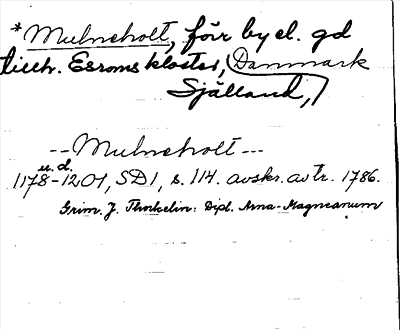 *Mulneholt, förr by el. gd
tillh. Esroms kloster, (Danmark
Själland,)
--Mulneholt---
u.d.
1178-1201, SD1, s. 114. avskr. av tr. 1786.
Grim. J. Thorkelin: Dipl. Arna-Magnæanum